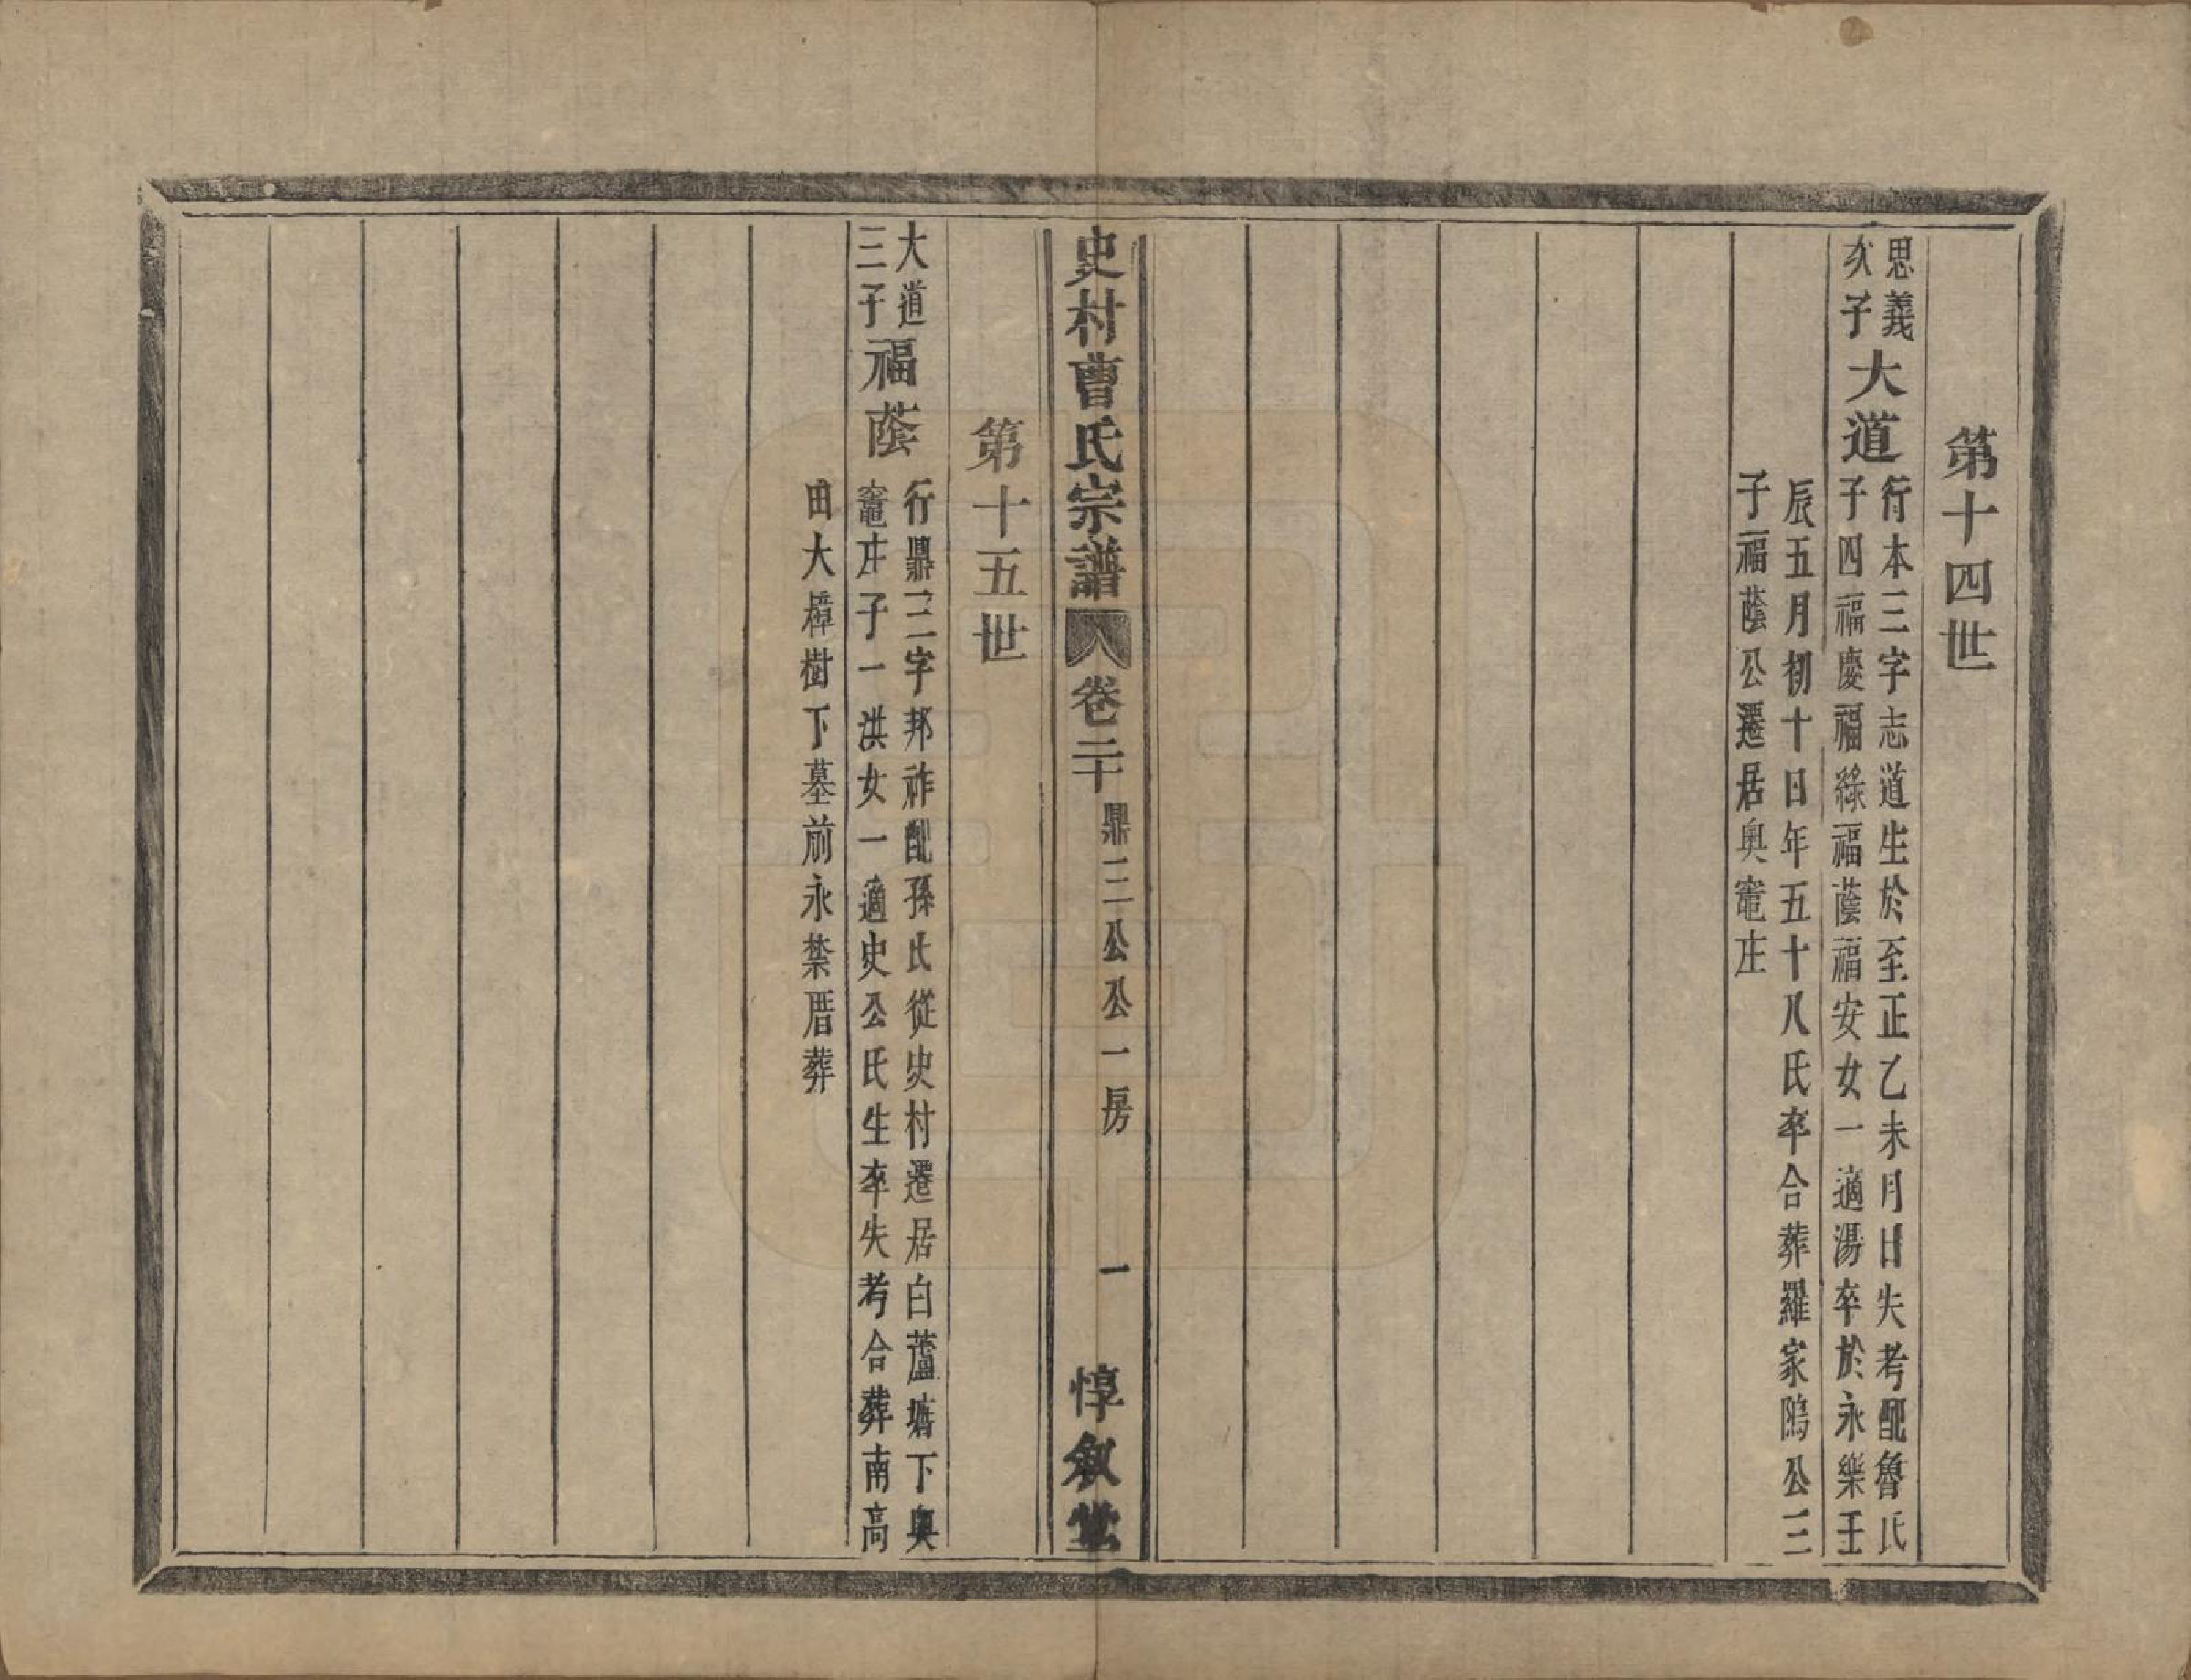 第十四世
思義
次子
大道
行本三字志道生於至正乙未月日失考配魯氏
子四福慶福綠福蔭福安女一適湯卒於永樂壬
辰五月初十日年五十八氏卒合葬羅家鴟公三
子福蔭公遷居奥竈庄
史村曹氏宗譜 卷二十 鼎三公公一房 一 惇叙堂
第十五世
大道
三子
福蔭
行鼎三字邦祚配孫氏從史村遷居白蘆塘下奥
竈庄子一洪女一適史公氏生卒失考合葬南高
田大樟樹下墓前永禁厝葬